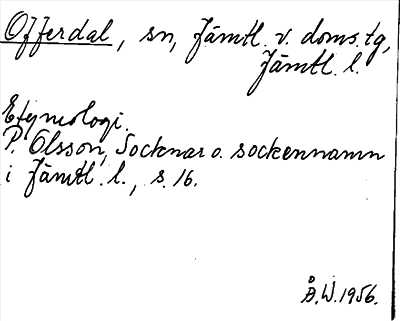 Offerdal, sn, Jämtl. v. doms. tg,
Jämtl. l.
Etymologi.
P. Olsson, Socknar o. sockennamn
i Jämtl. l., s. 16.
Å.W. 1956.